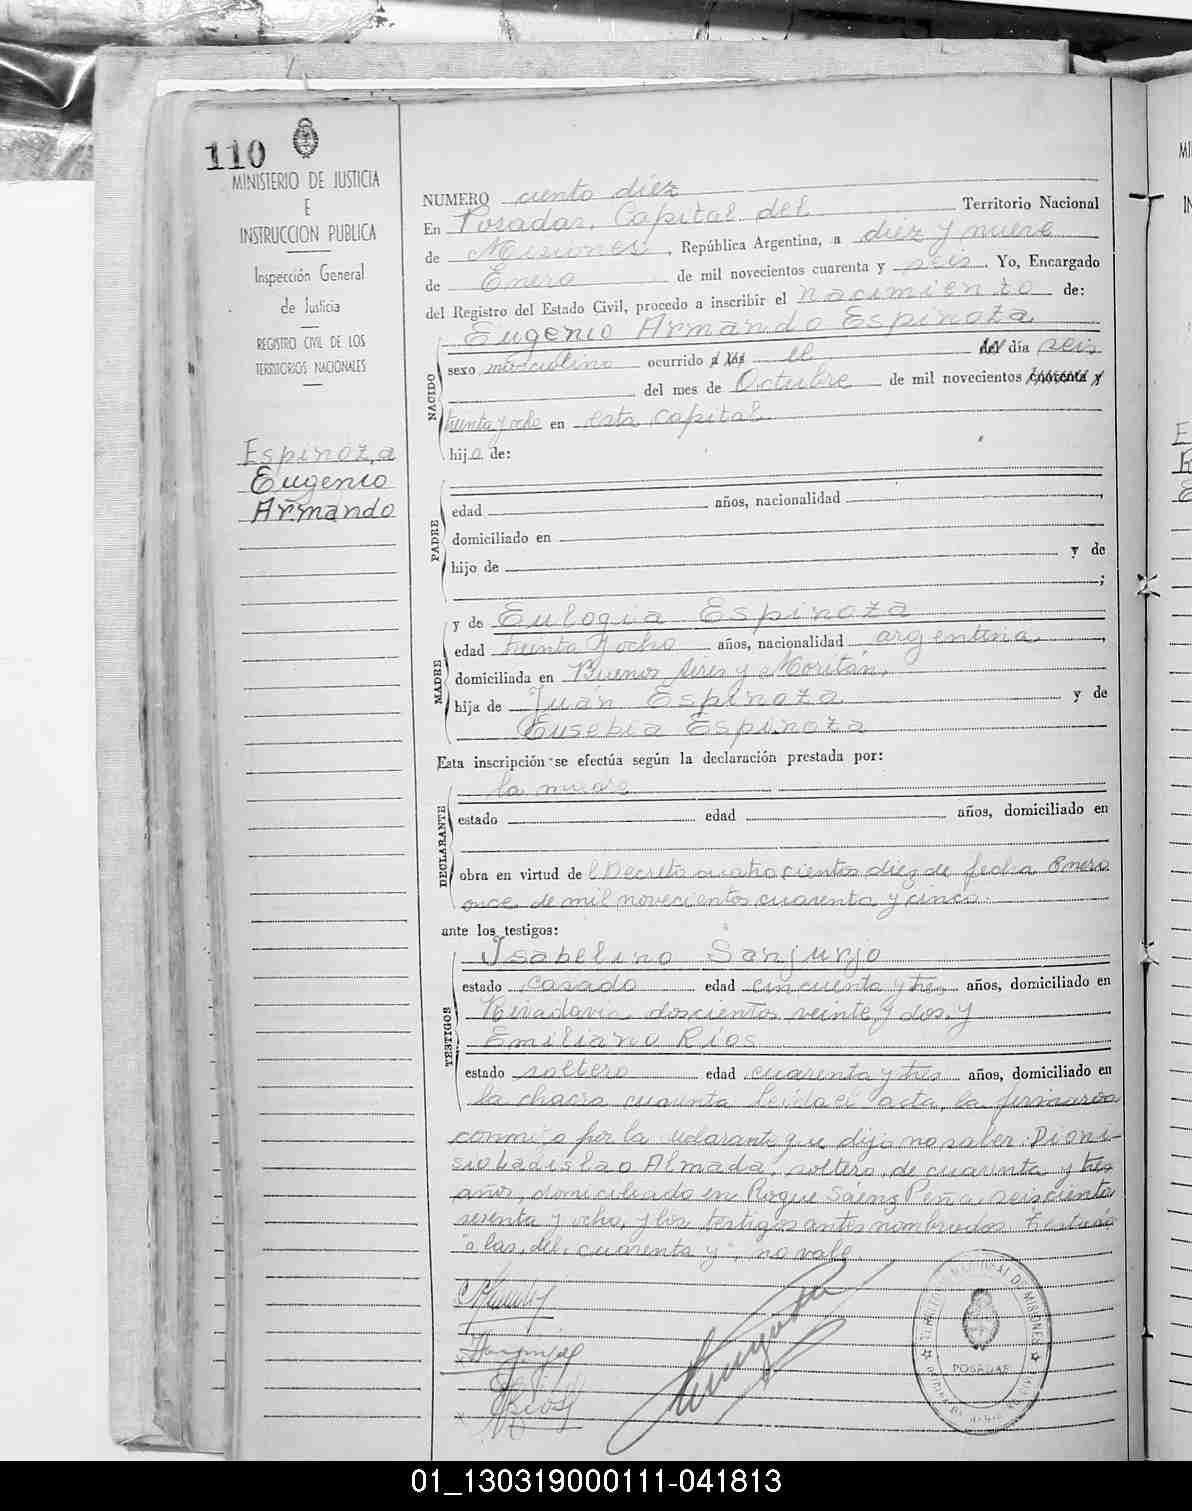 110
MINISTERIO DE JUSTICIA
E
INSTRUCCION PUBLICA
Inspección General
de Justicia
REGISTRO CIVIL DE LOS
TERRITORIOS NACIONALES
Espinoza
Eugenio
Armando
NUMERO ciento diez
En Posadas, Capital del Territorio Nacional
de Misiones, República Argentina, a diez y nueve
de Enero de mil novecientos cuarenta y seis. Yo, Encargado
del Registro del Estado Civil, procedo a inscribir el nacimiento de:
NACIDO
Eugenio Armando Espinoza
sexo masculino ocurrido a las el del día seis
del mes de Octubre de mil novecientos cuarenta y
treinta y ocho en esta capital
hijo de:
PADRE
edad años, nacionalidad
domiciliado en
hijo de y de
;
MADRE
y de Eulogia Espinoza
edad treinta y ocho años, nacionalidad argentina,
domiciliada en Buenos Aires y
hija de Juan Espinoza y de
Eusebia Espinoza
Esta inscripción se efectúa según la declaración prestada por:
DECLARANTE
la madre
estado edad años, domiciliado en
obra en virtud del Decreto cuatrocientos diez de fecha Enero
once de mil novecientos cuarenta y cinco.
ante los testigos:
TESTIGOS
Isabelino Sanjurjo
estado casado edad cincuenta y tres años, domiciliado en
Rivadavia doscientos veinte y dos, y
Emiliano Ríos
estado soltero edad cuarenta y tres años, domiciliado en
la chacra cuarenta Leída el acta, la firmaron
conmigo por la declarante que dijo no saber Dioni-
sio Ladislao Almada, soltero, de cuarenta y tres
años, domiciliado en Roque Sáenz Peña seiscientos
sesenta y ocho, y los testigos antes nombrados. Testado
"a las, del, cuarenta y", no vale.
POSADAS
01_130319000111-041813